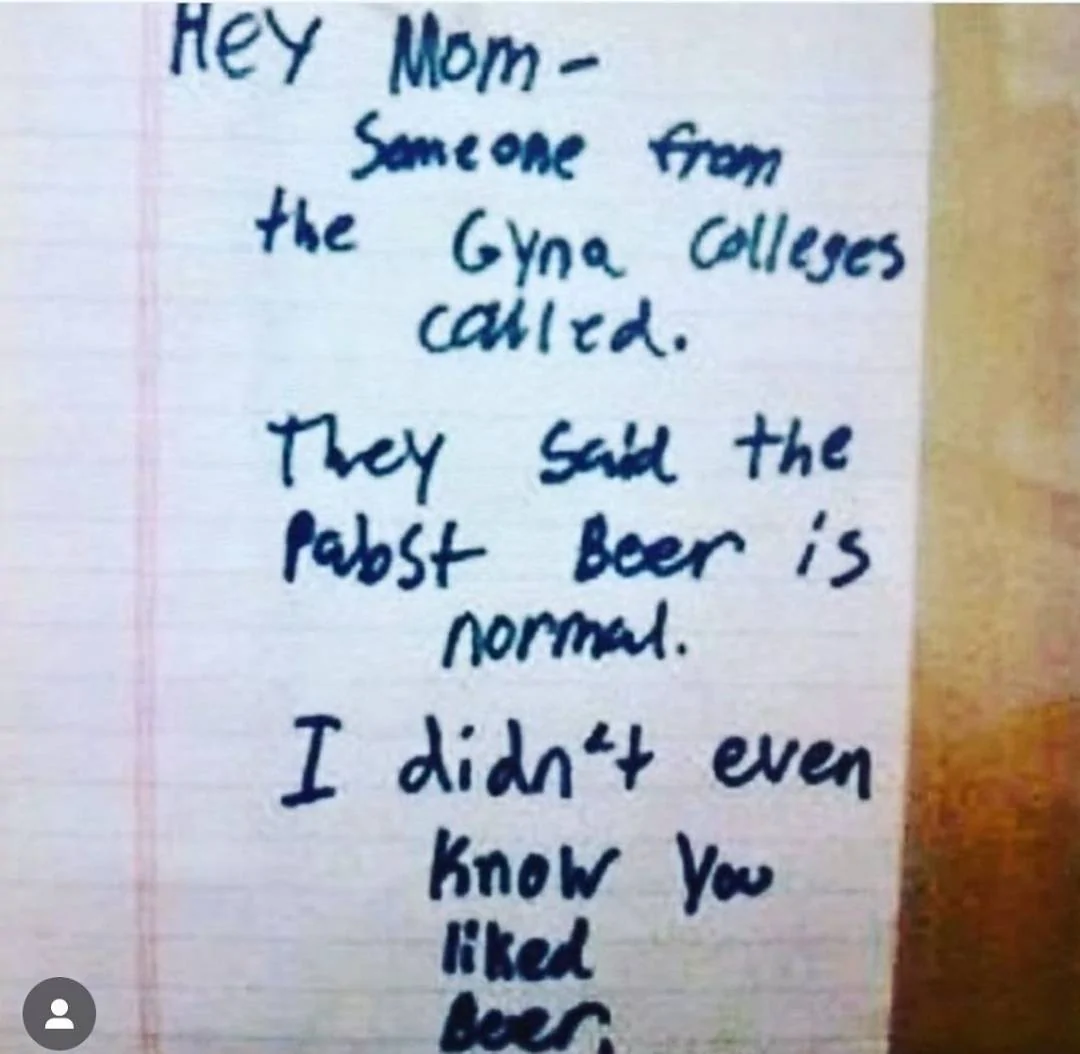 Hey Mom-
Someone from
the Gyna Colleges
called.
They said the
Pabst Beer is
normal.
I didn't even
Know You
liked
Beer.